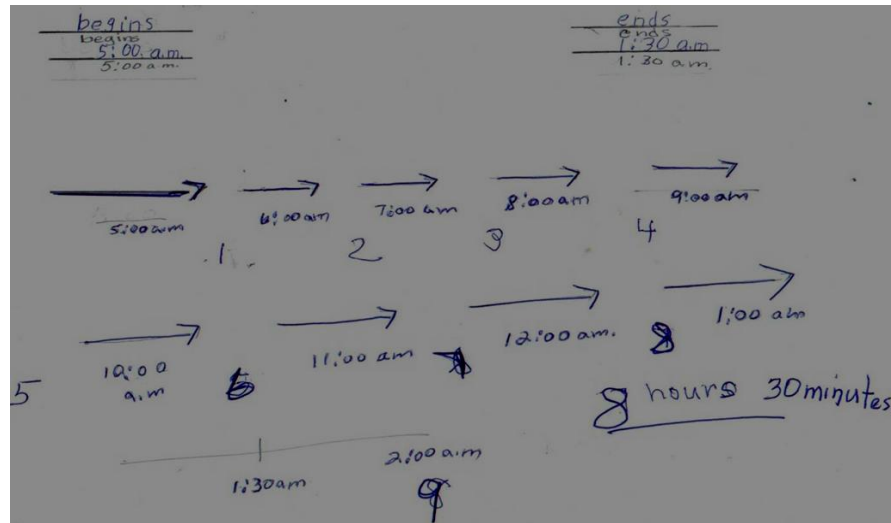 begins
begins
5:00 a.m.
5:00 a.m.
ends
ends
1:30 a.m
1:30 a.m.
5:00 a.m
6:00 am
7:00 am
8:00 am
9:00 am
1
2
3
4
10:00
a.m
11:00 am
12:00 am.
1:00 am
5
6
8
8 hours 30 minutes
1:30 am
2:00 a.m
9